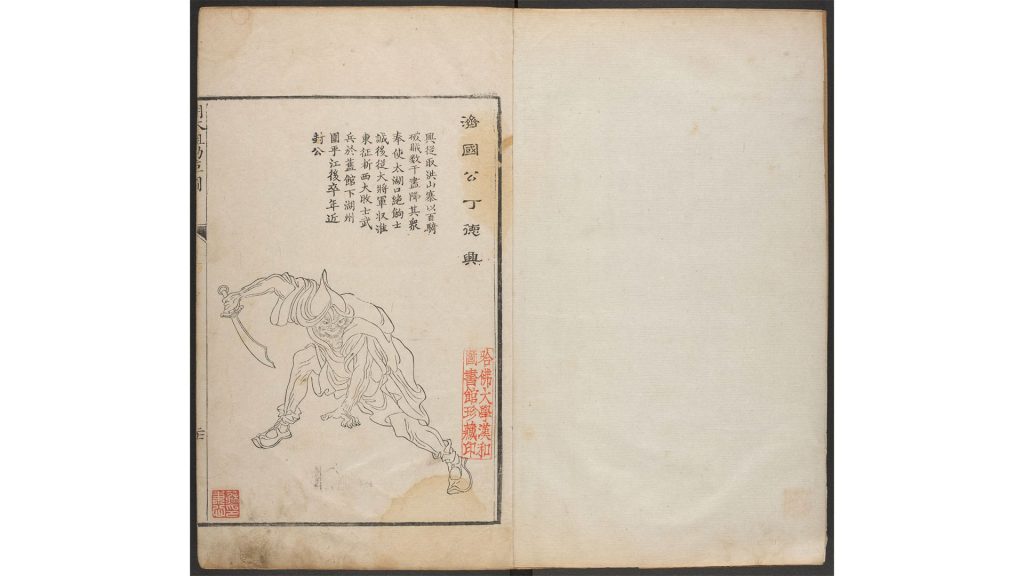 濟國公丁德興
興從取洪山寨以百騎
破賊數千盡降其衆
奉使太湖口絕餉士
誠後從大將軍収淮
東征浙西大敗士
兵於舊館下湖州
圍平江後卒年近
封公
哈佛大學漢和
圖書館珍藏印